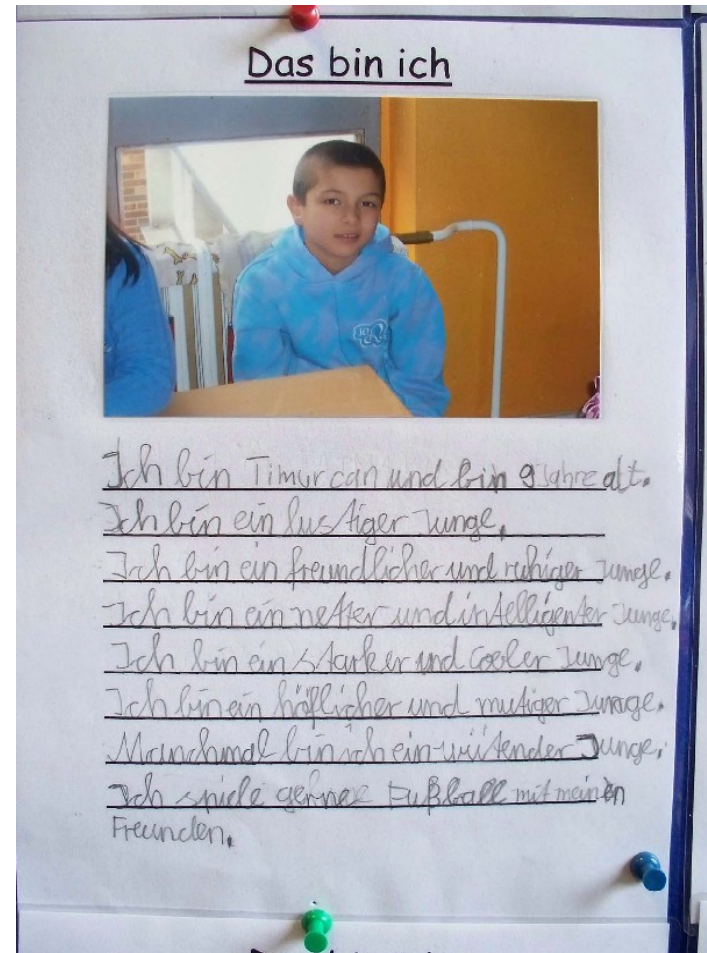 Das bin ich
Ich bin Timurcan und bin 9 Jahre alt.
Ich bin ein lustiger Junge.
Ich bin ein freundlicher und ruhiger Junge.
Ich bin ein netter und intelligenter Junge.
Ich bin ein starker und cooler Junge.
Ich bin ein höflicher und mutiger Junge.
Manchmal bin ich ein wütender Junge.
Ich spiele gerne Fußball mit meinen
Freunden.